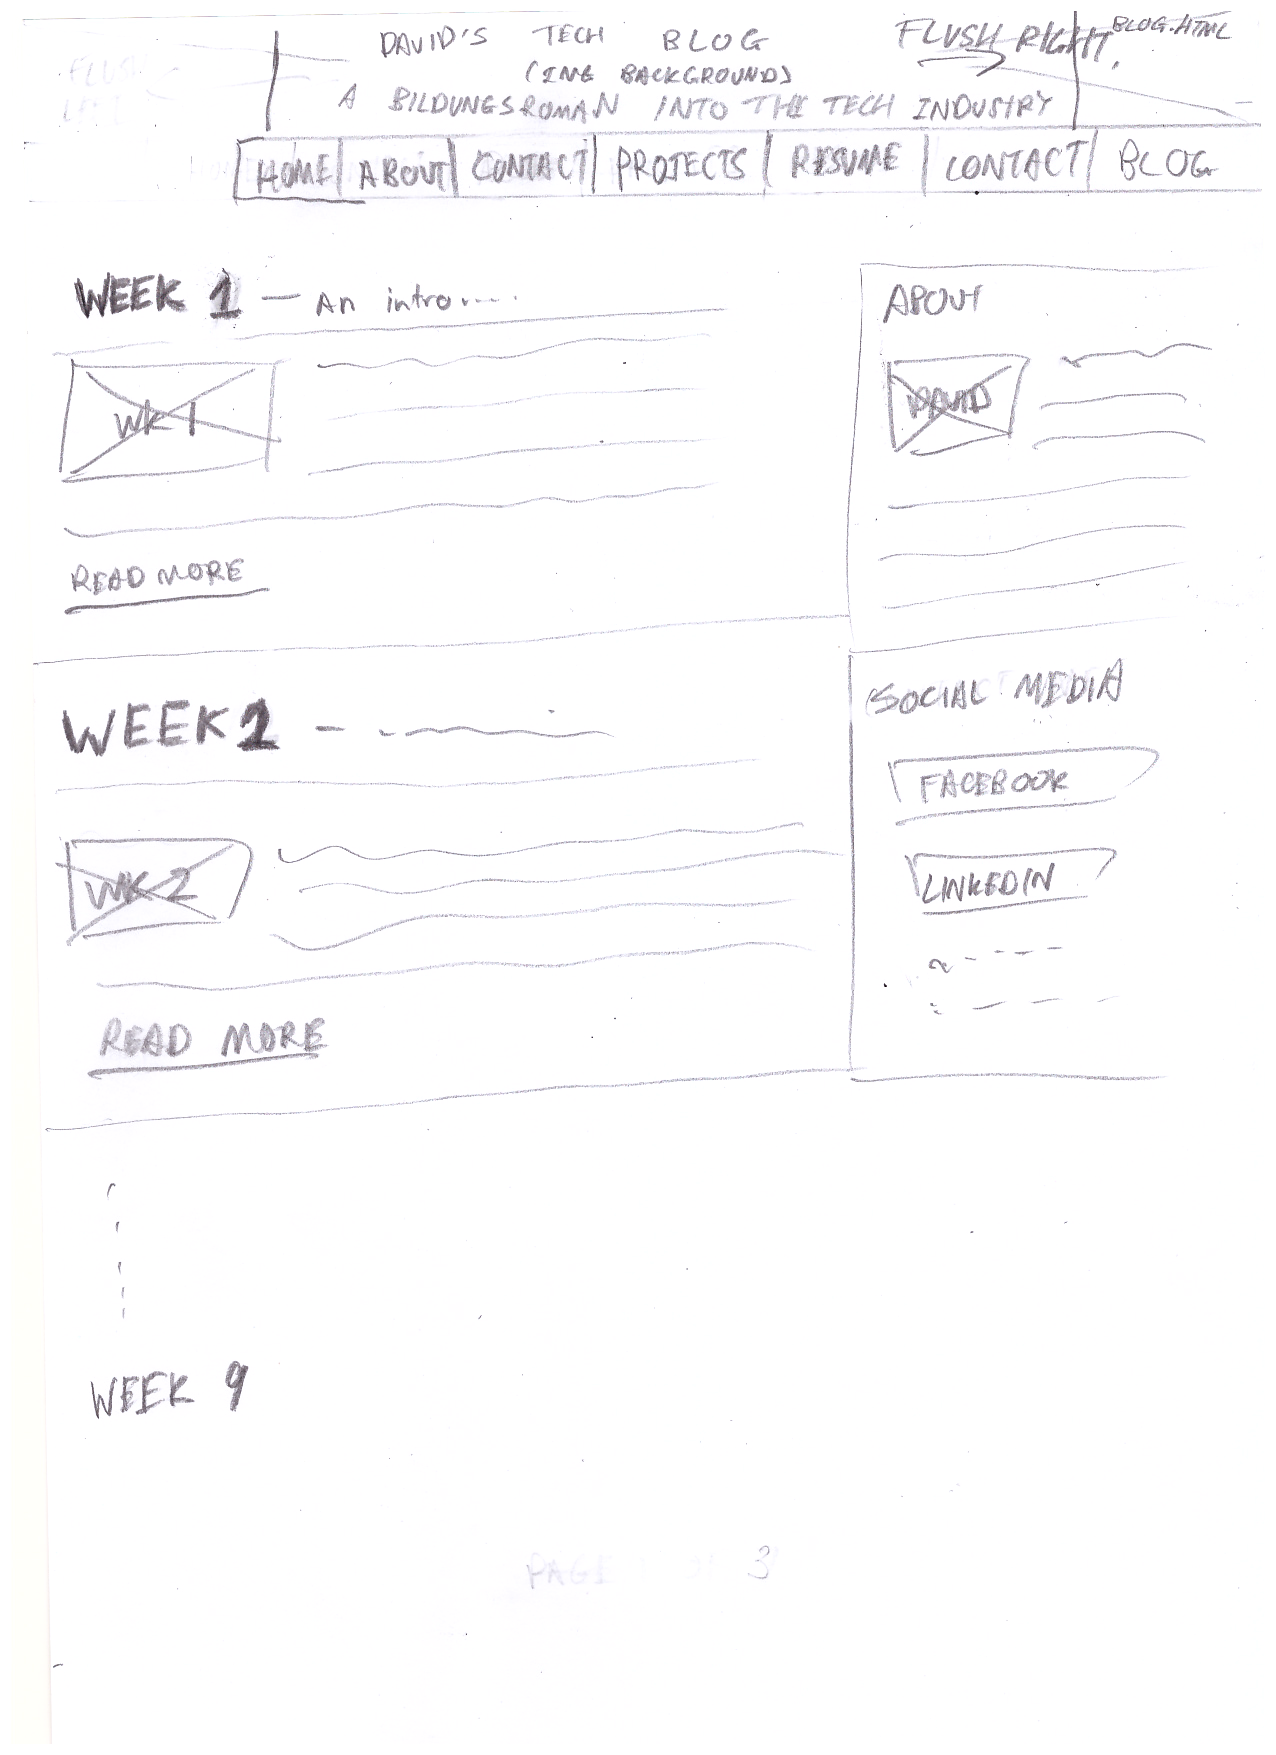 DAVID'S TECH BLOG
FLUSH RIGHT,
BLOG.HTML
(IMG BACKGROUND)
A BILDUNGSROMAN INTO THE TECH INDUSTRY
HOME ABOUT CONTACT PROJECTS RESUME CONTACT BLOG
WEEK 1 — An intro.....
WK 1
READ MORE
ABOUT
DAVID
WEEK 2 -
WK 2
READ MORE
SOCIAL MEDIA
FACEBOOK
LINKEDIN
WEEK 9
PAGE 3